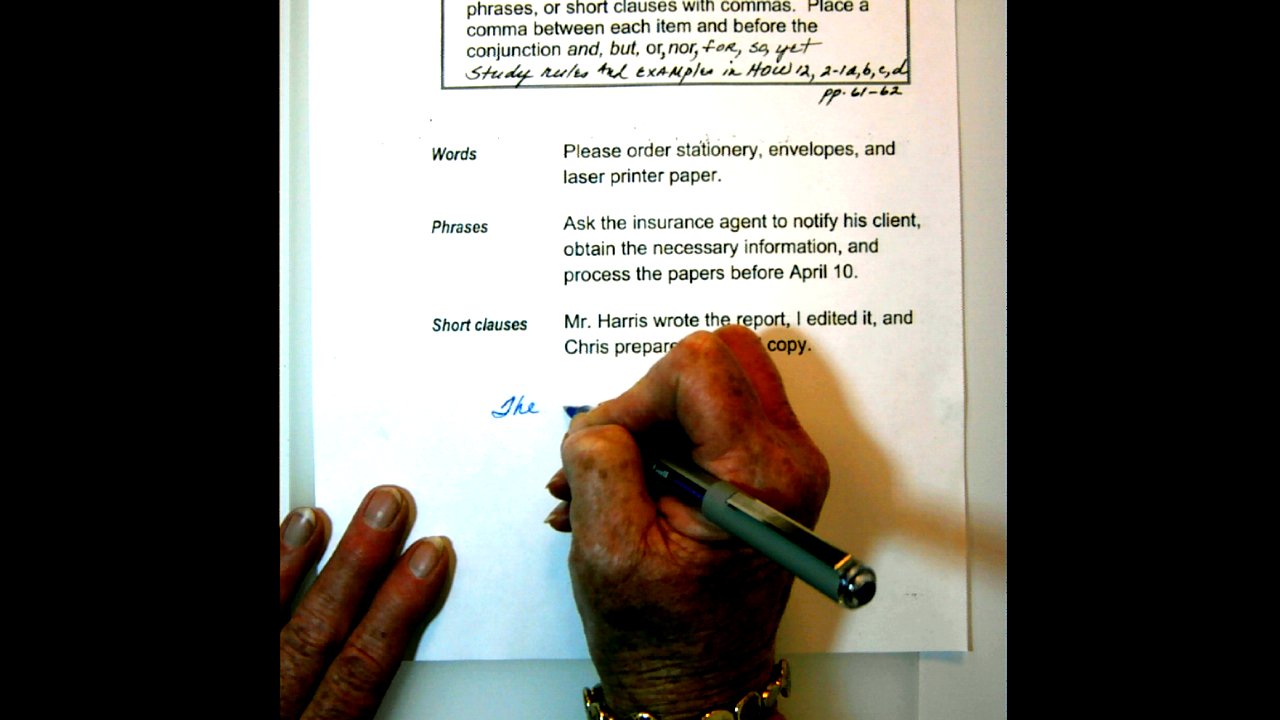 phrases, or short clauses with commas. Place a
comma between each item and before the
conjunction and, but, or, nor, for, so, yet
Study rules and examples in HOW 12, 2-1a,b,c,d
pp. 61-62
Words
Please order stationery, envelopes, and
laser printer paper.
Phrases
Ask the insurance agent to notify his client,
obtain the necessary information, and
process the papers before April 10.
Short clauses
Mr. Harris wrote the report, I edited it, and
Chris copy.
The